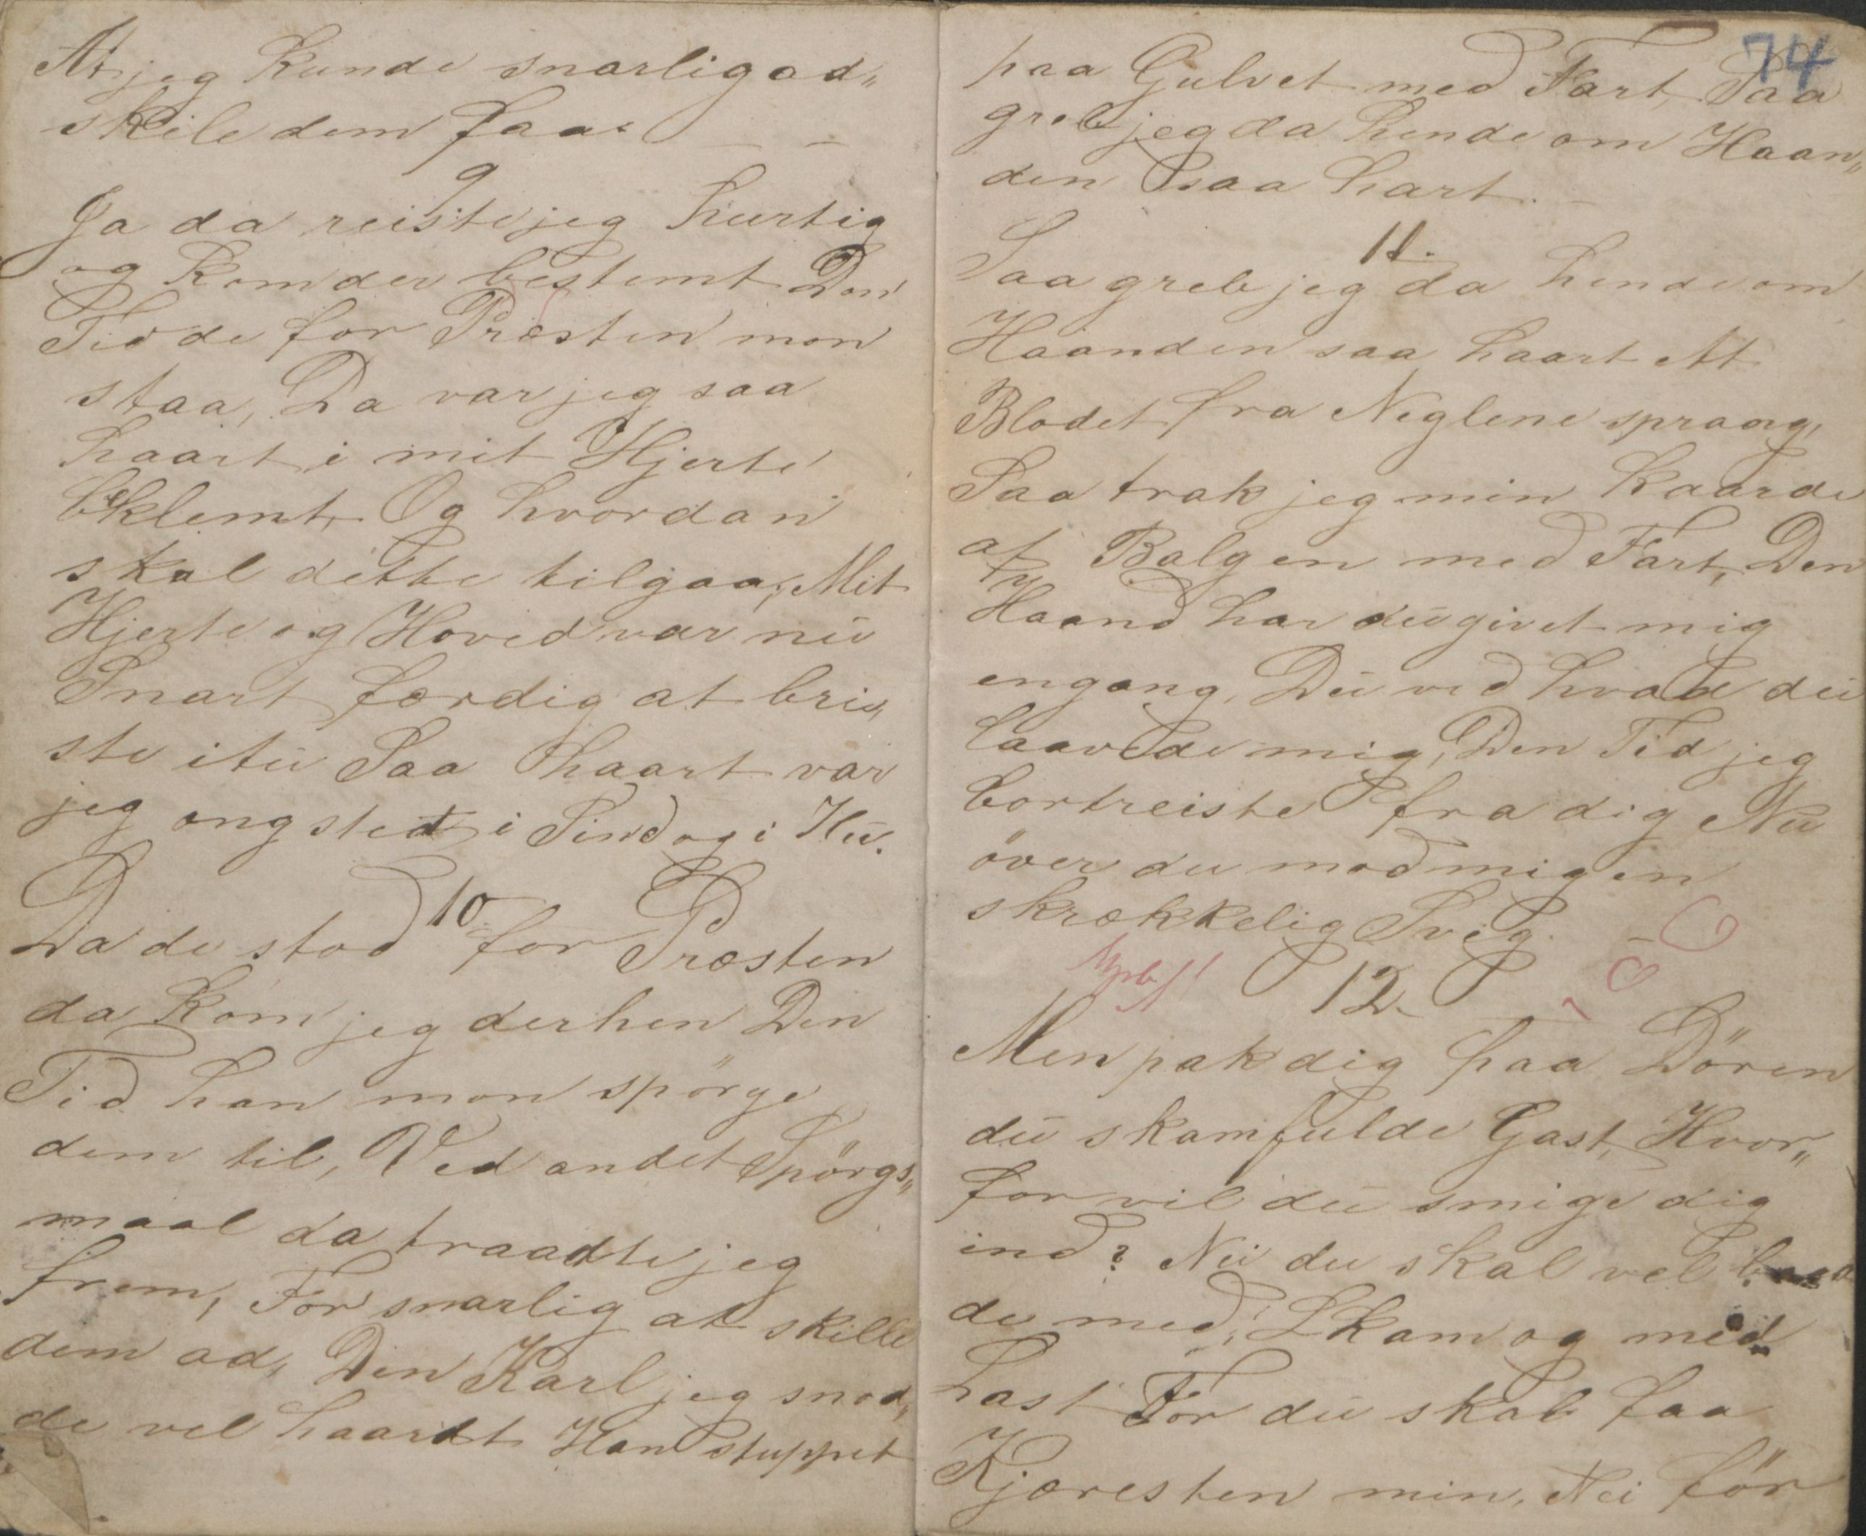 At jeg kunde snarlig ad„
skile dem faa. – –
9
Ja da reiste jeg hurtig
og kom der bestemt Den
Tid de for Præsten mon
staa, Da var jeg saa
haart i mit Hjerte
beklemt, Og hvordan
skal dette tilgaa, Mit
Hjerte og Hoved var nu
Snart færdig at bri„
ste itu Saa haart var
jeg angsted i Sind og i Hu.
10
Da de stod for Præsten
da kom jeg derhen Den
Tid han mon spörge
dem til, Ved andet Spörgs„
maal da traadte jeg
frem, For snarlig at skille
dem ad, Den Karl jeg snod„
de vel haardt Han stuppet
74
paa Gulvet med Fart, Saa
greb jeg da hende om Haan„
den saa hart. –
11.
Saa greb jeg da hende om
Haanden saa haart At
Blodet fra Neglene spraang,
Saa trak jeg min Kaarde
af Balgen med Fart, Den
Haand har du givet mig
engang, Du ved hvad du
laavede mig, Den Tid jeg
bortreiste fra dig Nu
över du mod mig en
skrækkelig Svig.
12.
Men pak dig paa Dören
du skamfulde Gast, Hvor„
for vil du smige dig
ind? Nei du skal vel
de med, Skam og med
Last För du skal faa
Kjæresten min, Nei för